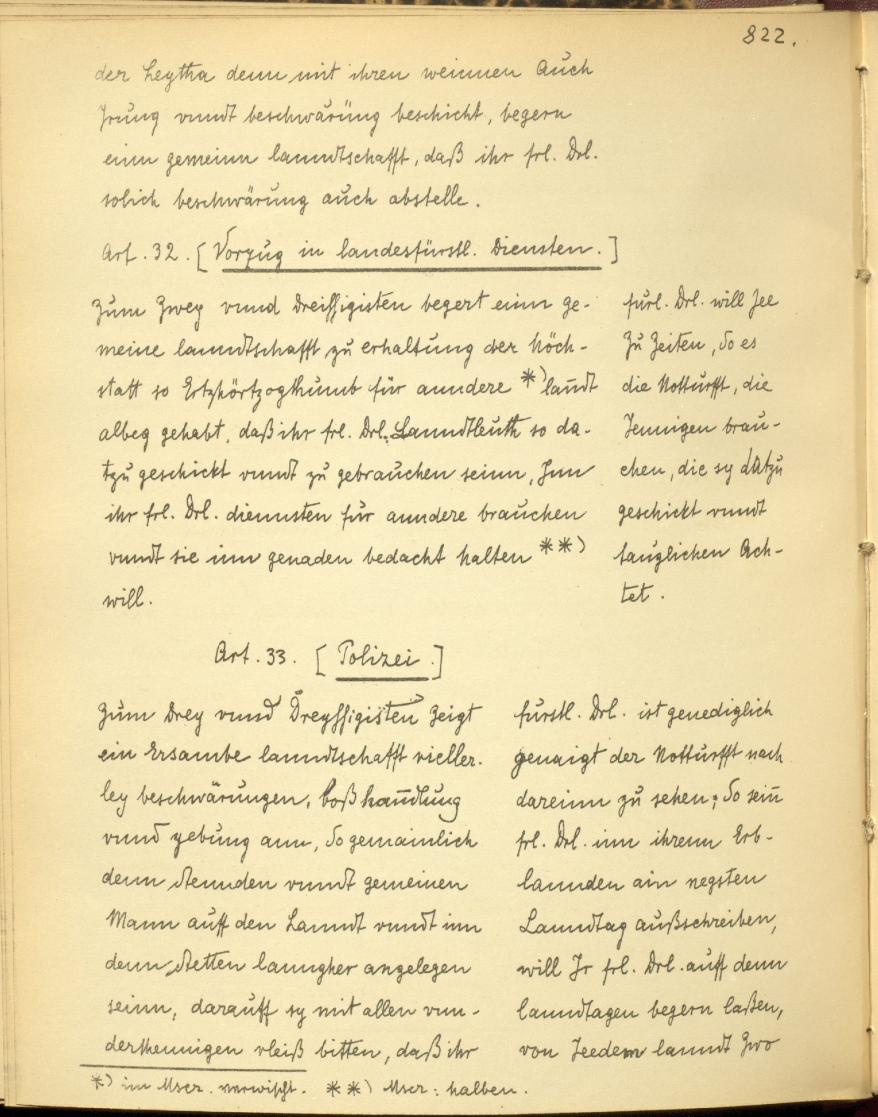 822.
der Leytha denn mit ihren weinnen Auch
Jrung vnndt beschwärüng beschicht, begern
einn gemeinn lanndtschafft, daß ihr frl. Drl.
solich beschwärung auch abstelle.
Art. 32. [Vorzug in landesfürstl. Diensten.]
Zum Zwey vnnd Dreissigisten begert einn ge-
meine lanndtschafft zu erhaltung der höch-
statt so Ertzhörtzogthumb für anndere *) landt
albeg gehabt, daß ihr frl. Drl. Lanndtleuth so da-
tzu geschickt vnndt zu gebrauchen seinn, Jnn
ihr frl. Drl. diennsten für anndere brauchen
vnndt sie inn genaden bedacht halten **)
will.
fürl. Drl. will Jee
Zu Zeiten, So es
die Notturfft, die
Jennigen brau-
chen, die sy datzu
geschickt vnndt
tauglichen Ach-
tet.
Art. 33. [Polizei.]
Zum Drey vnnd Dreyssigisten Zeigt
ein Ersambe lanndtschafft vieller-
ley beschwärungen, boßhandlung
vnnd yebung ann, So gemainlich
denn Stennden vnndt gemeinen
Mann auff den Lanndt vnndt inn
denn Stetten lanngher angelegen
seinn, darauff sy mit allen vnn-
derthennigen vleiß bitten, daß ihr
fürstl. Drl. ist genediglich
genaigt der Notturfft nach
dareinn zu sehen; So sein
frl. Drl. inn ihrenn Erb-
lannden ain negsten
Lanndtag außschreiben,
will Jr frl. Drl. auff denn
lanndtagen begern laßen,
von Jeedem lanndt Zwo
*) im Mscr. verwischt. **) Mscr: halben.